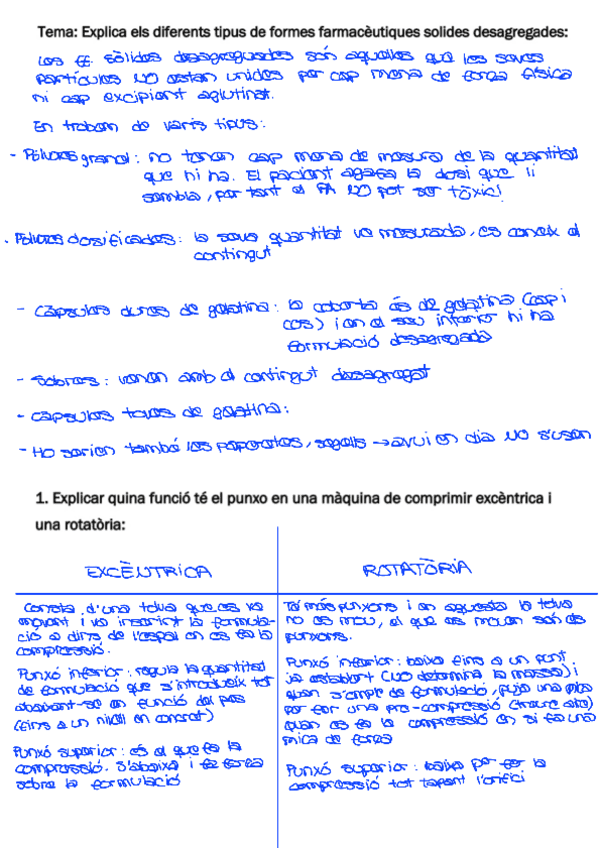 Tema: Explica els diferents tipus de formes farmacèutiques solides desagregades:
Les FF. sòlides desagregades són aquelles que les seves
partícules NO estan unides per cap mena de força física
ni cap excipient aglutinat.
En trobem de varis tipus:
- Pólvores granel: no tenen cap mena de mesura de la quantitat
que hi ha. El pacient agafa la dosi que li
sembla, per tant el PA NO pot ser tòxic!
· Pólvores dosificades: la seva quantitat ve mesurada, es coneix el
contingut
- Càpsules dures de gelatina: la coberta és de gelatina (cap i
cos) i en el seu interior hi ha
formulació desagregada
- Sobres: venen amb el contingut desagregat
- càpsules toves de gelatina:
- Ho serien també les paperetes, segells → avui en dia NO s'usen
1. Explicar quina funció té el punxo en una màquina de comprimir excèntrica i
una rotatòria:
EXCÈNTRICA
Consta d'una tolva que es va
movent i va inserint la formula-
ció a dins de l'espai on es fa la
compressió.
Punxó inferior: regula la quantitat
de formulació que s'introdueix tot
abaixant-se en funció del pes
(fins a un nivell en concret)
Punxó superior: és el que fa la
compressió. S'abaixa i fa força
sobre la formulació
ROTATÒRIA
Té més punxons i en aquesta la tolva
no es mou, el que es mouen són els
punxons.
Punxó inferior: baixa fins a un punt
ja establert (NO determina la massa) i
quan s'omple de formulació, puja una mica
per fer una pre-compressió (treure aire)
quan es fa la compressió en si fa una
mica de força
Punxó superior: baixa per fer la
compressió tot tapant l'orifici